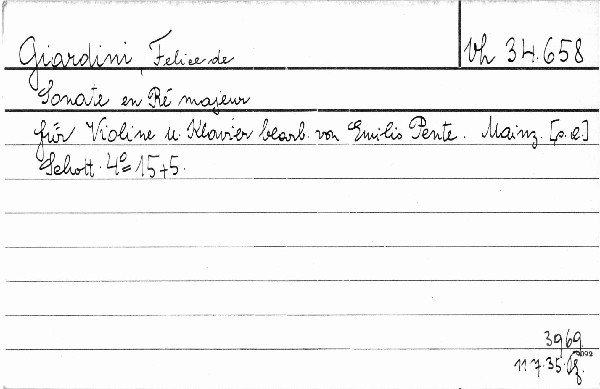 Giardini, Felice de
Vh 34.658
Sonate en Ré majeur
für Violine u. Klavier bearb. von Emilio Pente. Mainz. [s.a.]
Schott. 4°= 15+5.
3969
11.7.35.